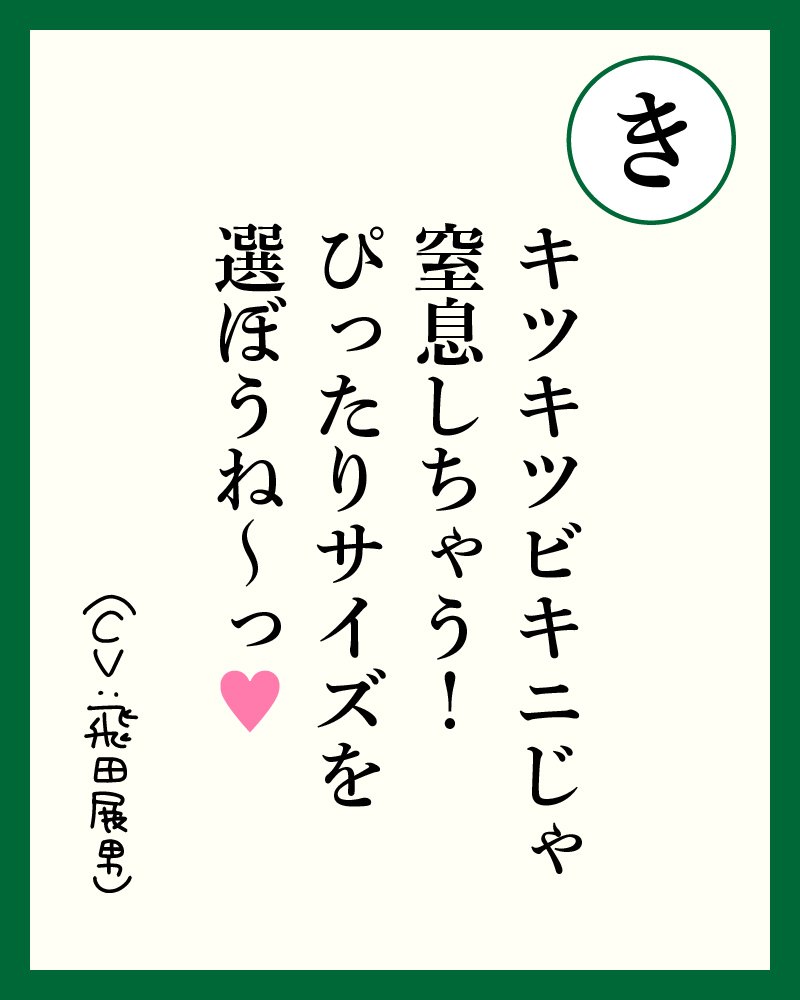 き
キツキツビキニじゃ
窒息しちゃう！
ぴったりサイズを
選ぼうね〜っ♥
（CV：飛田展男）